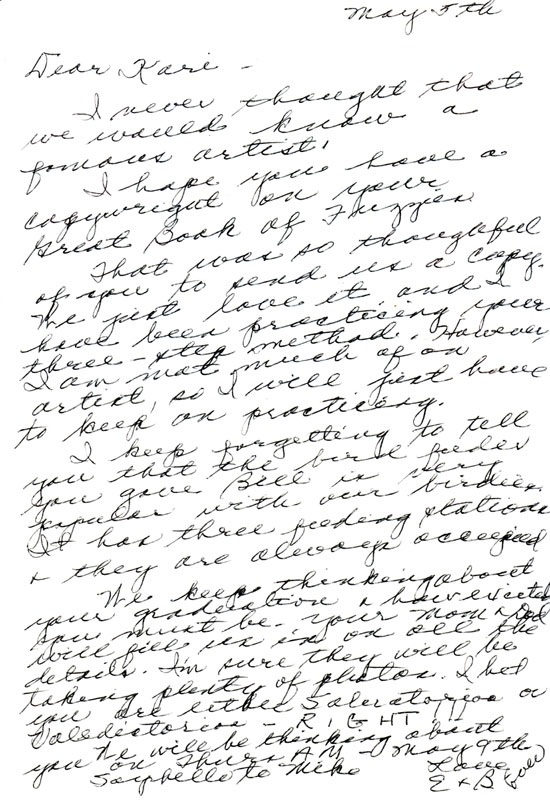 May 5th
Dear Kari -
I never thought that
we would know a
famous artist!
I hope you have a
copywright on your
Great Book of Fuzzies.
That was so thoughtful
of you to send us a copy.
We just love it and I
have been practicing your
three-step method. However,
I am not much of an
artist, so I will just have
to keep on practicing.
I keep forgetting to tell
you that the bird feeder
you gave Bill is very
popular with our birdies.
It has three feeding stations
+ they are always occupied
We keep thinking about
your graduation & how excited
you must be. your Mom & Dad
will fill us in on all the
details. I'm sure they will be
taking plenty of photos. I bet
you are either Saluratorian or
Valedictorian - RIGHT!!
We will be thinking about
you on Thurs AM - May 9th
Say hello to Mike
Love
E & B